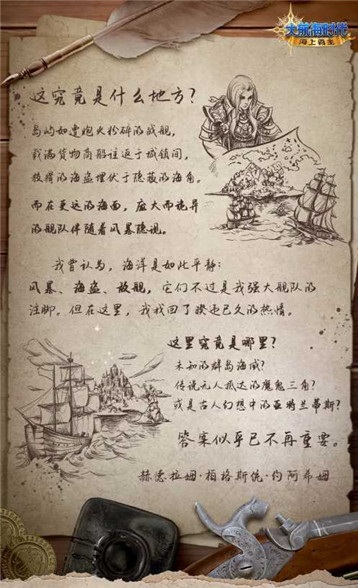 大航海时代
海上霸主
这究竟是什么地方?
岛屿如遭炮火粉碎的战舰,
载满货物商船往返于城镇间,
狡猾的海盗埋伏于隐蔽的海角,
而在更远的海面,庞大而诡异
的舰队伴随着风暴隐现。
我曾认为,海洋是如此平静:
风暴、海盗、敌舰,它们不过是我强大舰队的
注脚。但在这里,我找回了睽违已久的热情。
这里究竟是哪里?
未知的群岛海域?
传说无人抵达的魔鬼三角?
或是古人幻想中的亚特兰蒂斯?
答案似乎已不再重要。
赫德拉姆·柏格斯统·约阿希姆